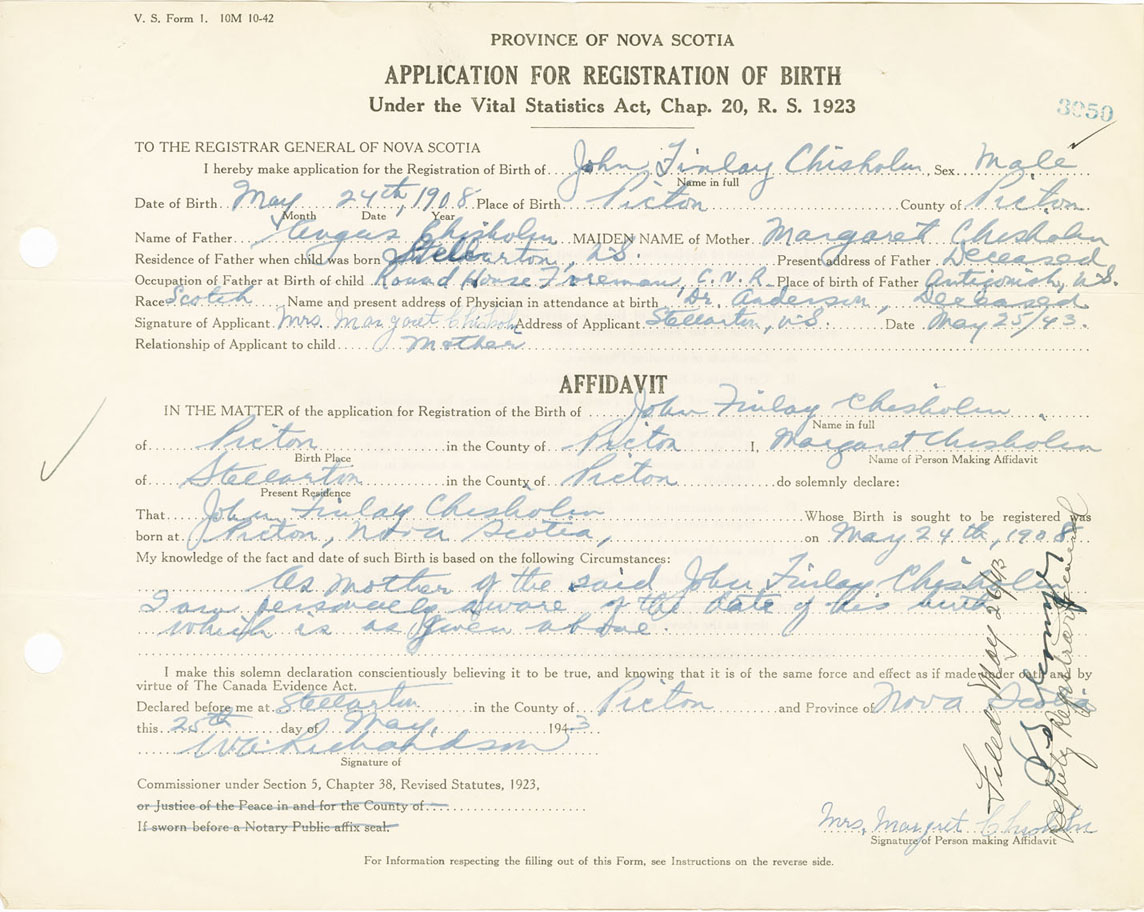 V. S. Form 1. 10M 10-42
PROVINCE OF NOVA SCOTIA
APPLICATION FOR REGISTRATION OF BIRTH
Under the Vital Statistics Act, Chap. 20, R. S. 1923
3950
TO THE REGISTRAR GENERAL OF NOVA SCOTIA
I hereby make application for the Registration of Birth of John Finlay Chisholm, Sex Male
Name in full
Date of Birth May 24th, 1908 Place of Birth Picton County of Picton
Month Date Year
Name of Father Angus Chisholm MAIDEN NAME of Mother Margaret Chisholm
Residence of Father when child was born Stellarton, N.S. Present address of Father Deceased
Occupation of Father at Birth of child Round House Foreman, C.N.R. Place of birth of Father Antigonish, N.S.
Race Scotch Name and present address of Physician in attendance at birth Dr. Anderson, Deceased
Signature of Applicant Mrs. Margaret Chisholm Address of Applicant Stellarton, N.S. Date May 25/43.
Relationship of Applicant to child Mother
AFFIDAVIT
IN THE MATTER of the application for Registration of the Birth of John Finlay Chisholm
Name in full
of Picton in the County of Picton I, Margaret Chisholm
Birth Place Name of Person Making Affidavit
of Stellarton in the County of Picton do solemnly declare:
Present Residence
That John Finlay Chisholm Whose Birth is sought to be registered was
born at Picton, Nova Scotia, on May 24th, 1908
My knowledge of the fact and date of such Birth is based on the following Circumstances:
As mother of the said John Finlay Chisholm
I am personally aware of the date of his birth
which is as given above.
I make this solemn declaration conscientiously believing it to be true, and knowing that it is of the same force and effect as if made under oath and by
virtue of The Canada Evidence Act.
Declared before me at Stellarton in the County of Picton and Province of Nova Scotia
this 25th day of May, 1943
W A Richardson
Signature of
Commissioner under Section 5, Chapter 38, Revised Statutes, 1923,
or Justice of the Peace in and for the County of
If sworn before a Notary Public affix seal.
Mrs. Margret Chisholm
Signature of Person making Affidavit
For Information respecting the filling out of this Form, see Instructions on the reverse side.
Filed May 26/43
Deputy Registrar General